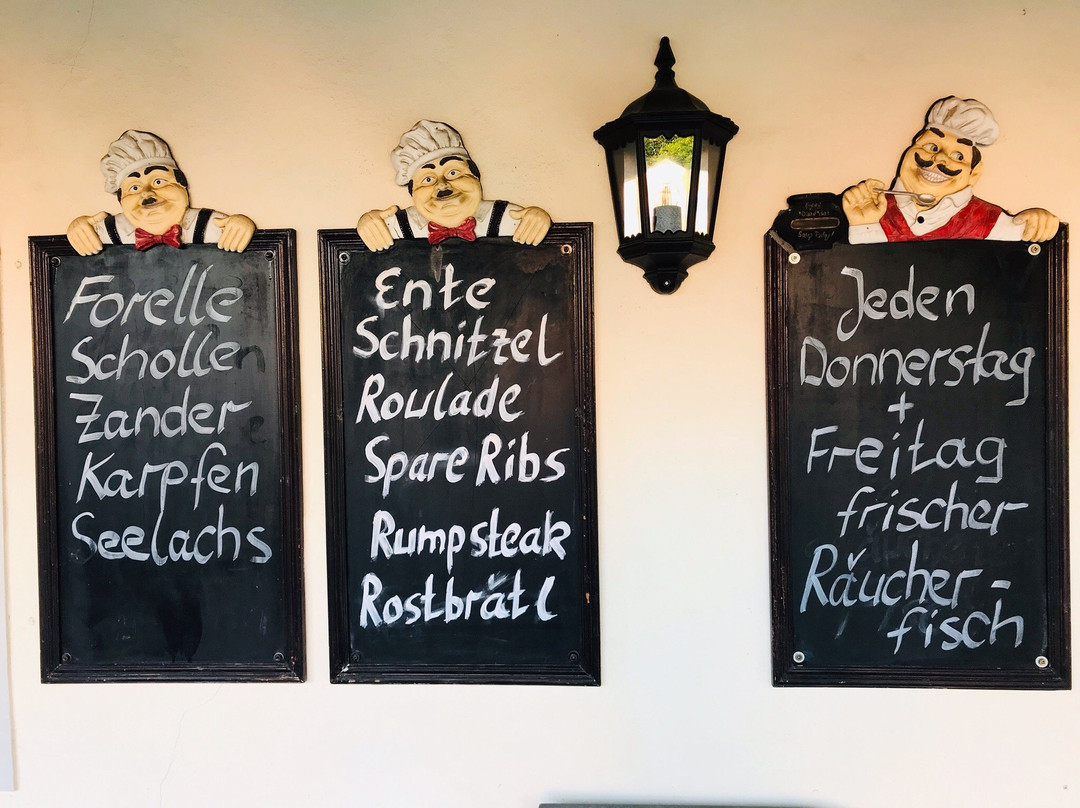 Forelle
Schollen
Zander
Karpfen
Seelachs
Ente
Schnitzel
Roulade
Spare Ribs
Rumpsteak
Rostbrätl
Jeden
Donnerstag
+
Freitag
frischer
Räucher-
fisch